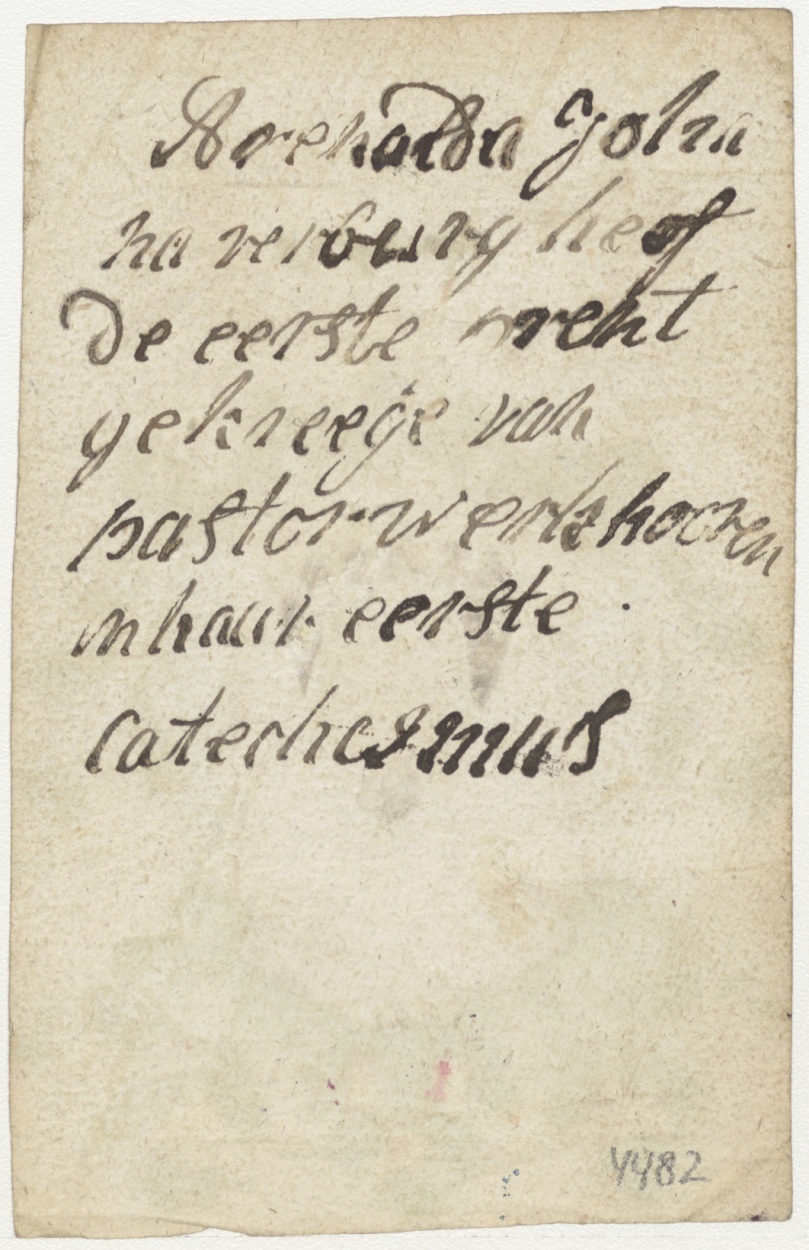 Arenalda Joha
na verburg heef
De eerste prent
gekreege van
pastor werkhooven
in haar eerste
catechesmus
4482